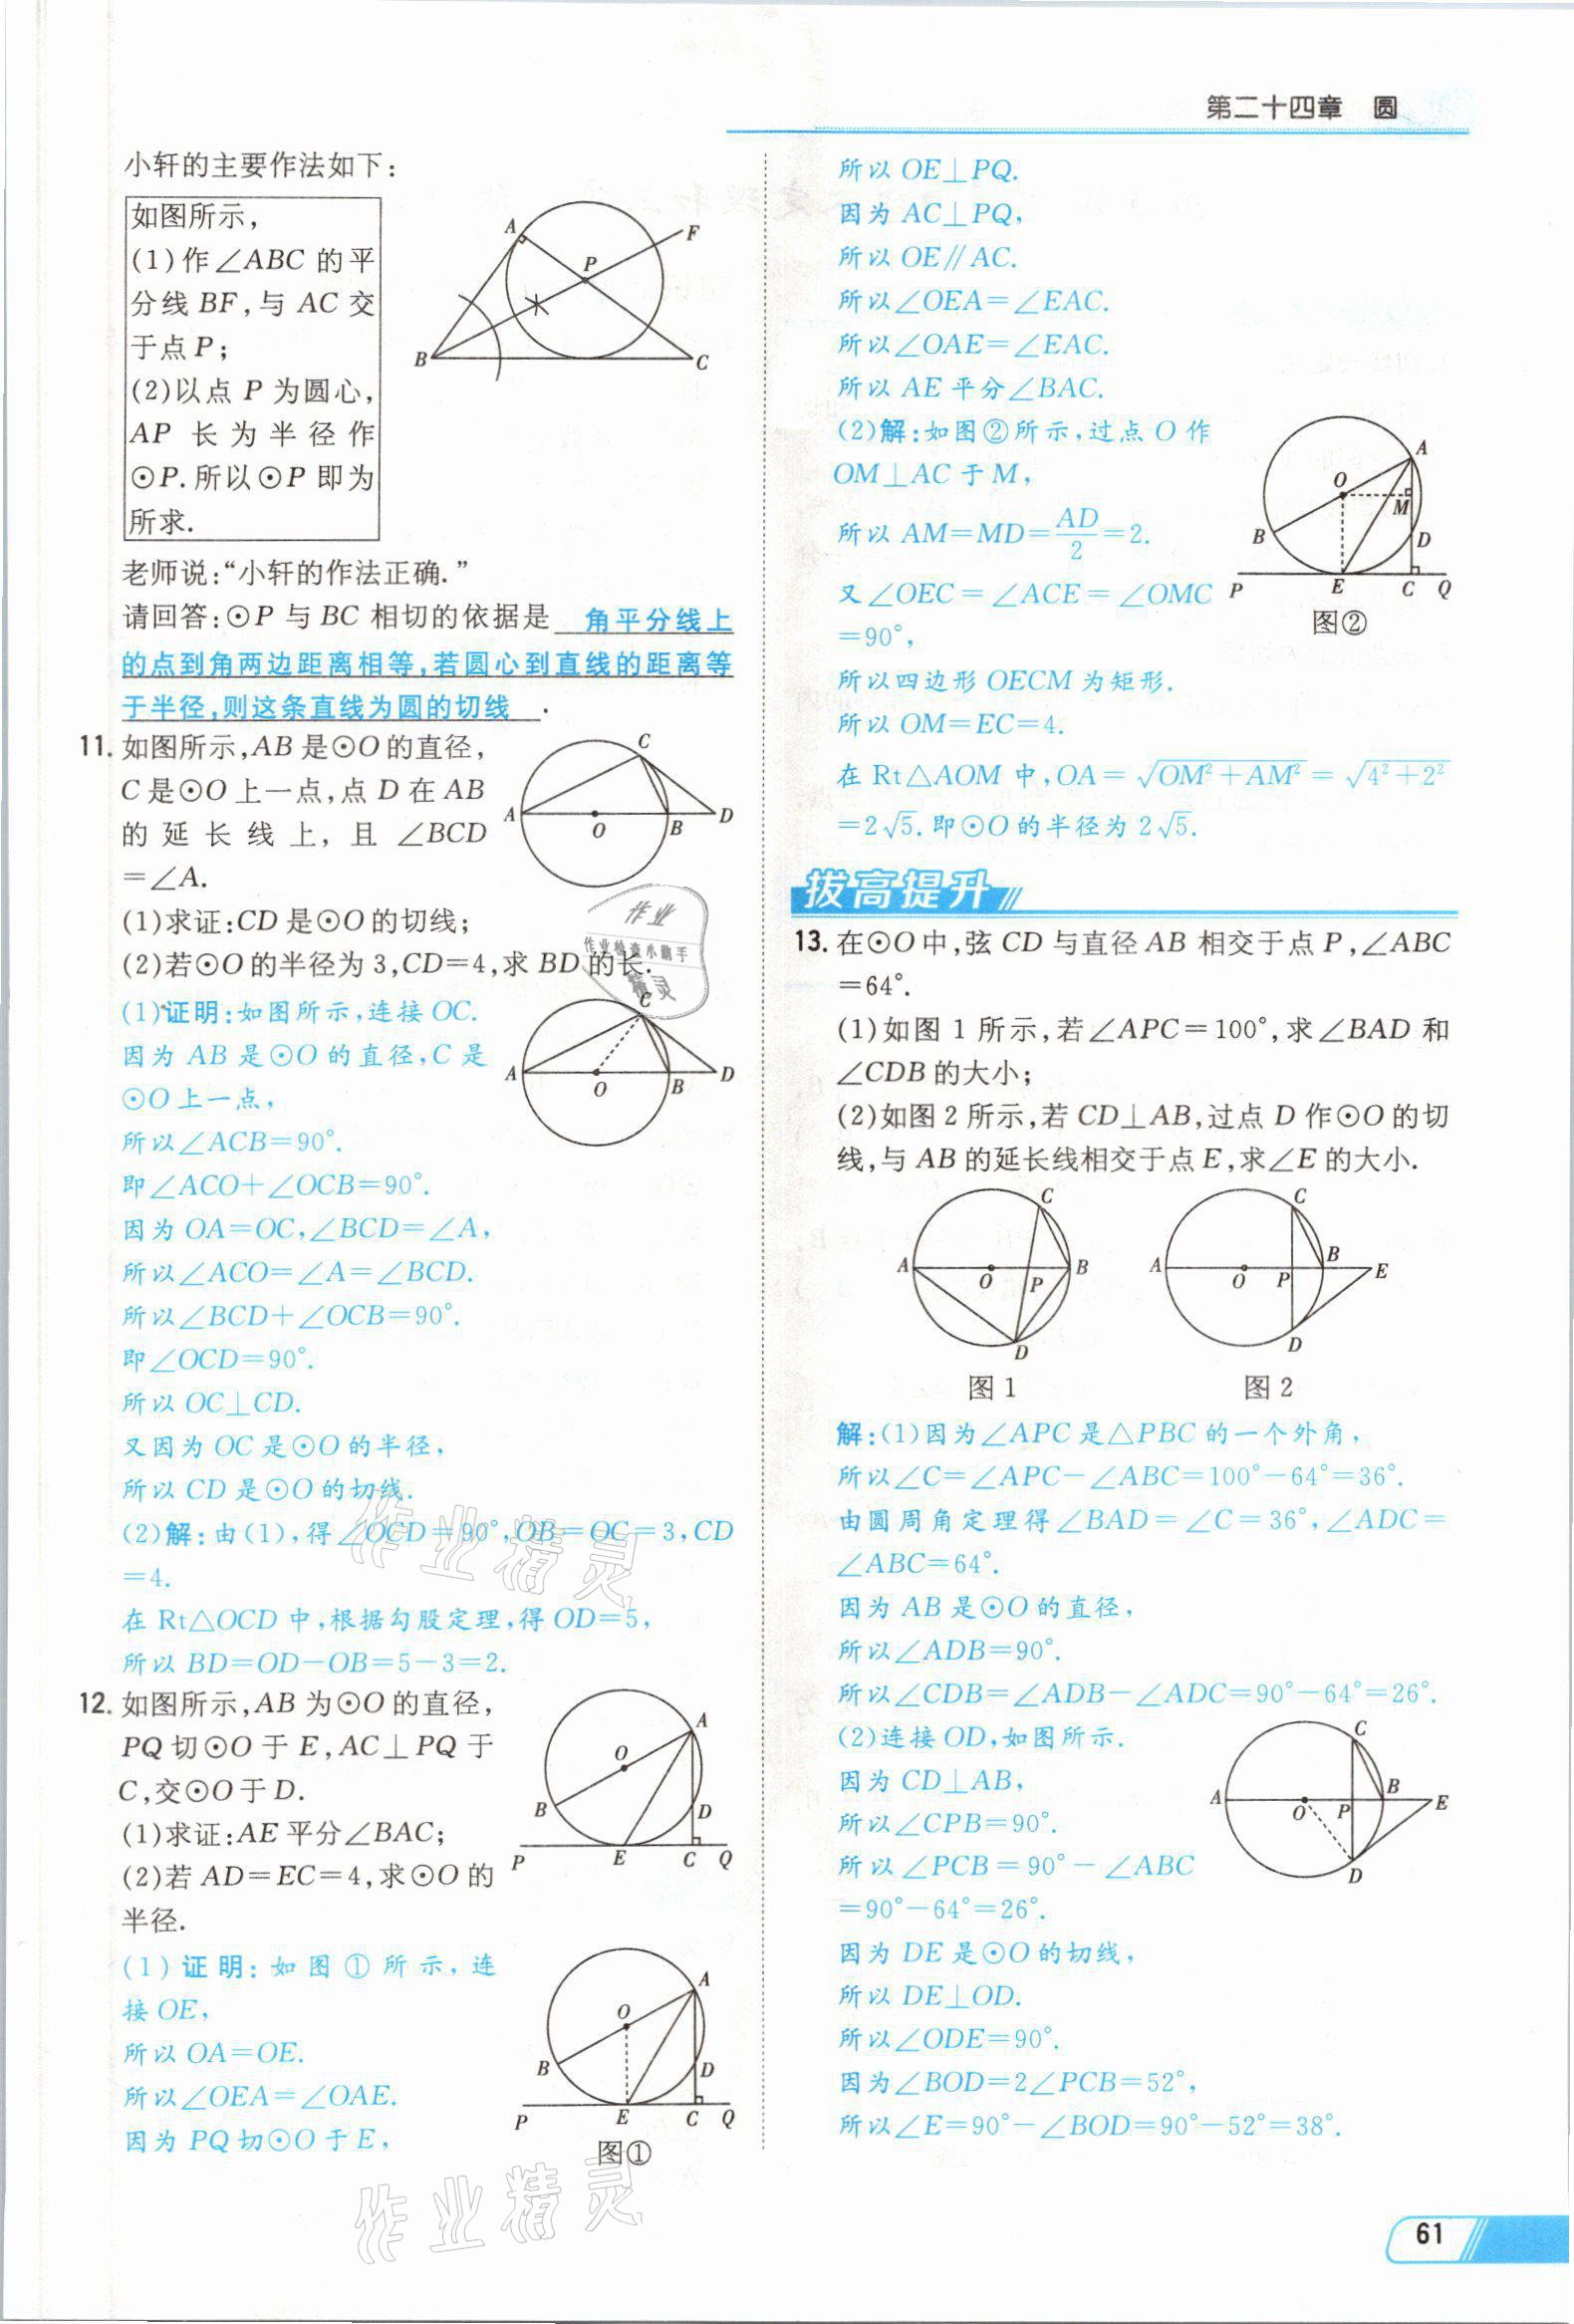 第二十四章 圆
小轩的主要作法如下:
如图所示,
(1)作∠ABC 的平
分线 BF,与 AC 交
于点 P;
(2)以点 P 为圆心,
AP 长为半径作
⊙P.所以⊙P 即为
所求.
A
P
F
B
C
老师说:“小轩的作法正确.”
请回答:⊙P 与 BC 相切的依据是 角平分线上
的点到角两边距离相等,若圆心到直线的距离等
于半径,则这条直线为圆的切线 .
11. 如图所示,AB 是⊙O 的直径,
C 是⊙O 上一点,点 D 在 AB
的延长线上,且 ∠BCD
=∠A.
(1)求证:CD 是⊙O 的切线;
(2)若⊙O 的半径为 3,CD=4,求 BD 的长.
C
A
O
B
D
作业
作业检查小助手
精灵
(1)证明:如图所示,连接 OC.
因为 AB 是⊙O 的直径,C 是
⊙O 上一点,
所以∠ACB=90°.
即∠ACO+∠OCB=90°.
因为 OA=OC,∠BCD=∠A,
所以∠ACO=∠A=∠BCD.
所以∠BCD+∠OCB=90°.
即∠OCD=90°.
所以 OC⊥CD.
又因为 OC 是⊙O 的半径,
所以 CD 是⊙O 的切线.
(2)解:由(1),得∠OCD=90°,OB=OC=3,CD
=4.
在 Rt△OCD 中,根据勾股定理,得 OD=5,
所以 BD=OD-OB=5-3=2.
C
A
O
B
D
作业精灵
12. 如图所示,AB 为⊙O 的直径,
PQ 切⊙O 于 E,AC⊥PQ 于
C,交⊙O 于 D.
(1)求证:AE 平分∠BAC;
(2)若 AD=EC=4,求⊙O 的
半径.
A
O
B
D
P
E
C
Q
(1)证明:如图①所示,连
接 OE,
所以 OA=OE.
所以∠OEA=∠OAE.
因为 PQ 切⊙O 于 E,
A
O
B
D
P
E
C
Q
图①
作业精灵
所以 OE⊥PQ.
因为 AC⊥PQ,
所以 OE∥AC.
所以∠OEA=∠EAC.
所以∠OAE=∠EAC.
所以 AE 平分∠BAC.
(2)解:如图②所示,过点 O 作
OM⊥AC 于 M,
所以 AM=MD=AD/2=2.
又∠OEC=∠ACE=∠OMC
=90°,
所以四边形 OECM 为矩形.
所以 OM=EC=4.
在 Rt△AOM 中,OA=√(OM²+AM²)=√(4²+2²)
=2√5.即⊙O 的半径为 2√5.
A
O
M
B
D
P
E
C
Q
图②
拔高提升
13. 在⊙O 中,弦 CD 与直径 AB 相交于点 P,∠ABC
=64°.
(1)如图 1 所示,若∠APC=100°,求∠BAD 和
∠CDB 的大小;
(2)如图 2 所示,若 CD⊥AB,过点 D 作⊙O 的切
线,与 AB 的延长线相交于点 E,求∠E 的大小.
C
A
O
P
B
D
图 1
C
A
O
P
B
E
D
图 2
解:(1)因为∠APC 是△PBC 的一个外角,
所以∠C=∠APC-∠ABC=100°-64°=36°.
由圆周角定理得∠BAD=∠C=36°,∠ADC=
∠ABC=64°.
因为 AB 是⊙O 的直径,
所以∠ADB=90°.
所以∠CDB=∠ADB-∠ADC=90°-64°=26°.
(2)连接 OD,如图所示.
因为 CD⊥AB,
所以∠CPB=90°.
所以∠PCB=90°-∠ABC
=90°-64°=26°.
因为 DE 是⊙O 的切线,
所以 DE⊥OD.
所以∠ODE=90°.
因为∠BOD=2∠PCB=52°,
所以∠E=90°-∠BOD=90°-52°=38°.
C
A
O
P
B
E
D
61